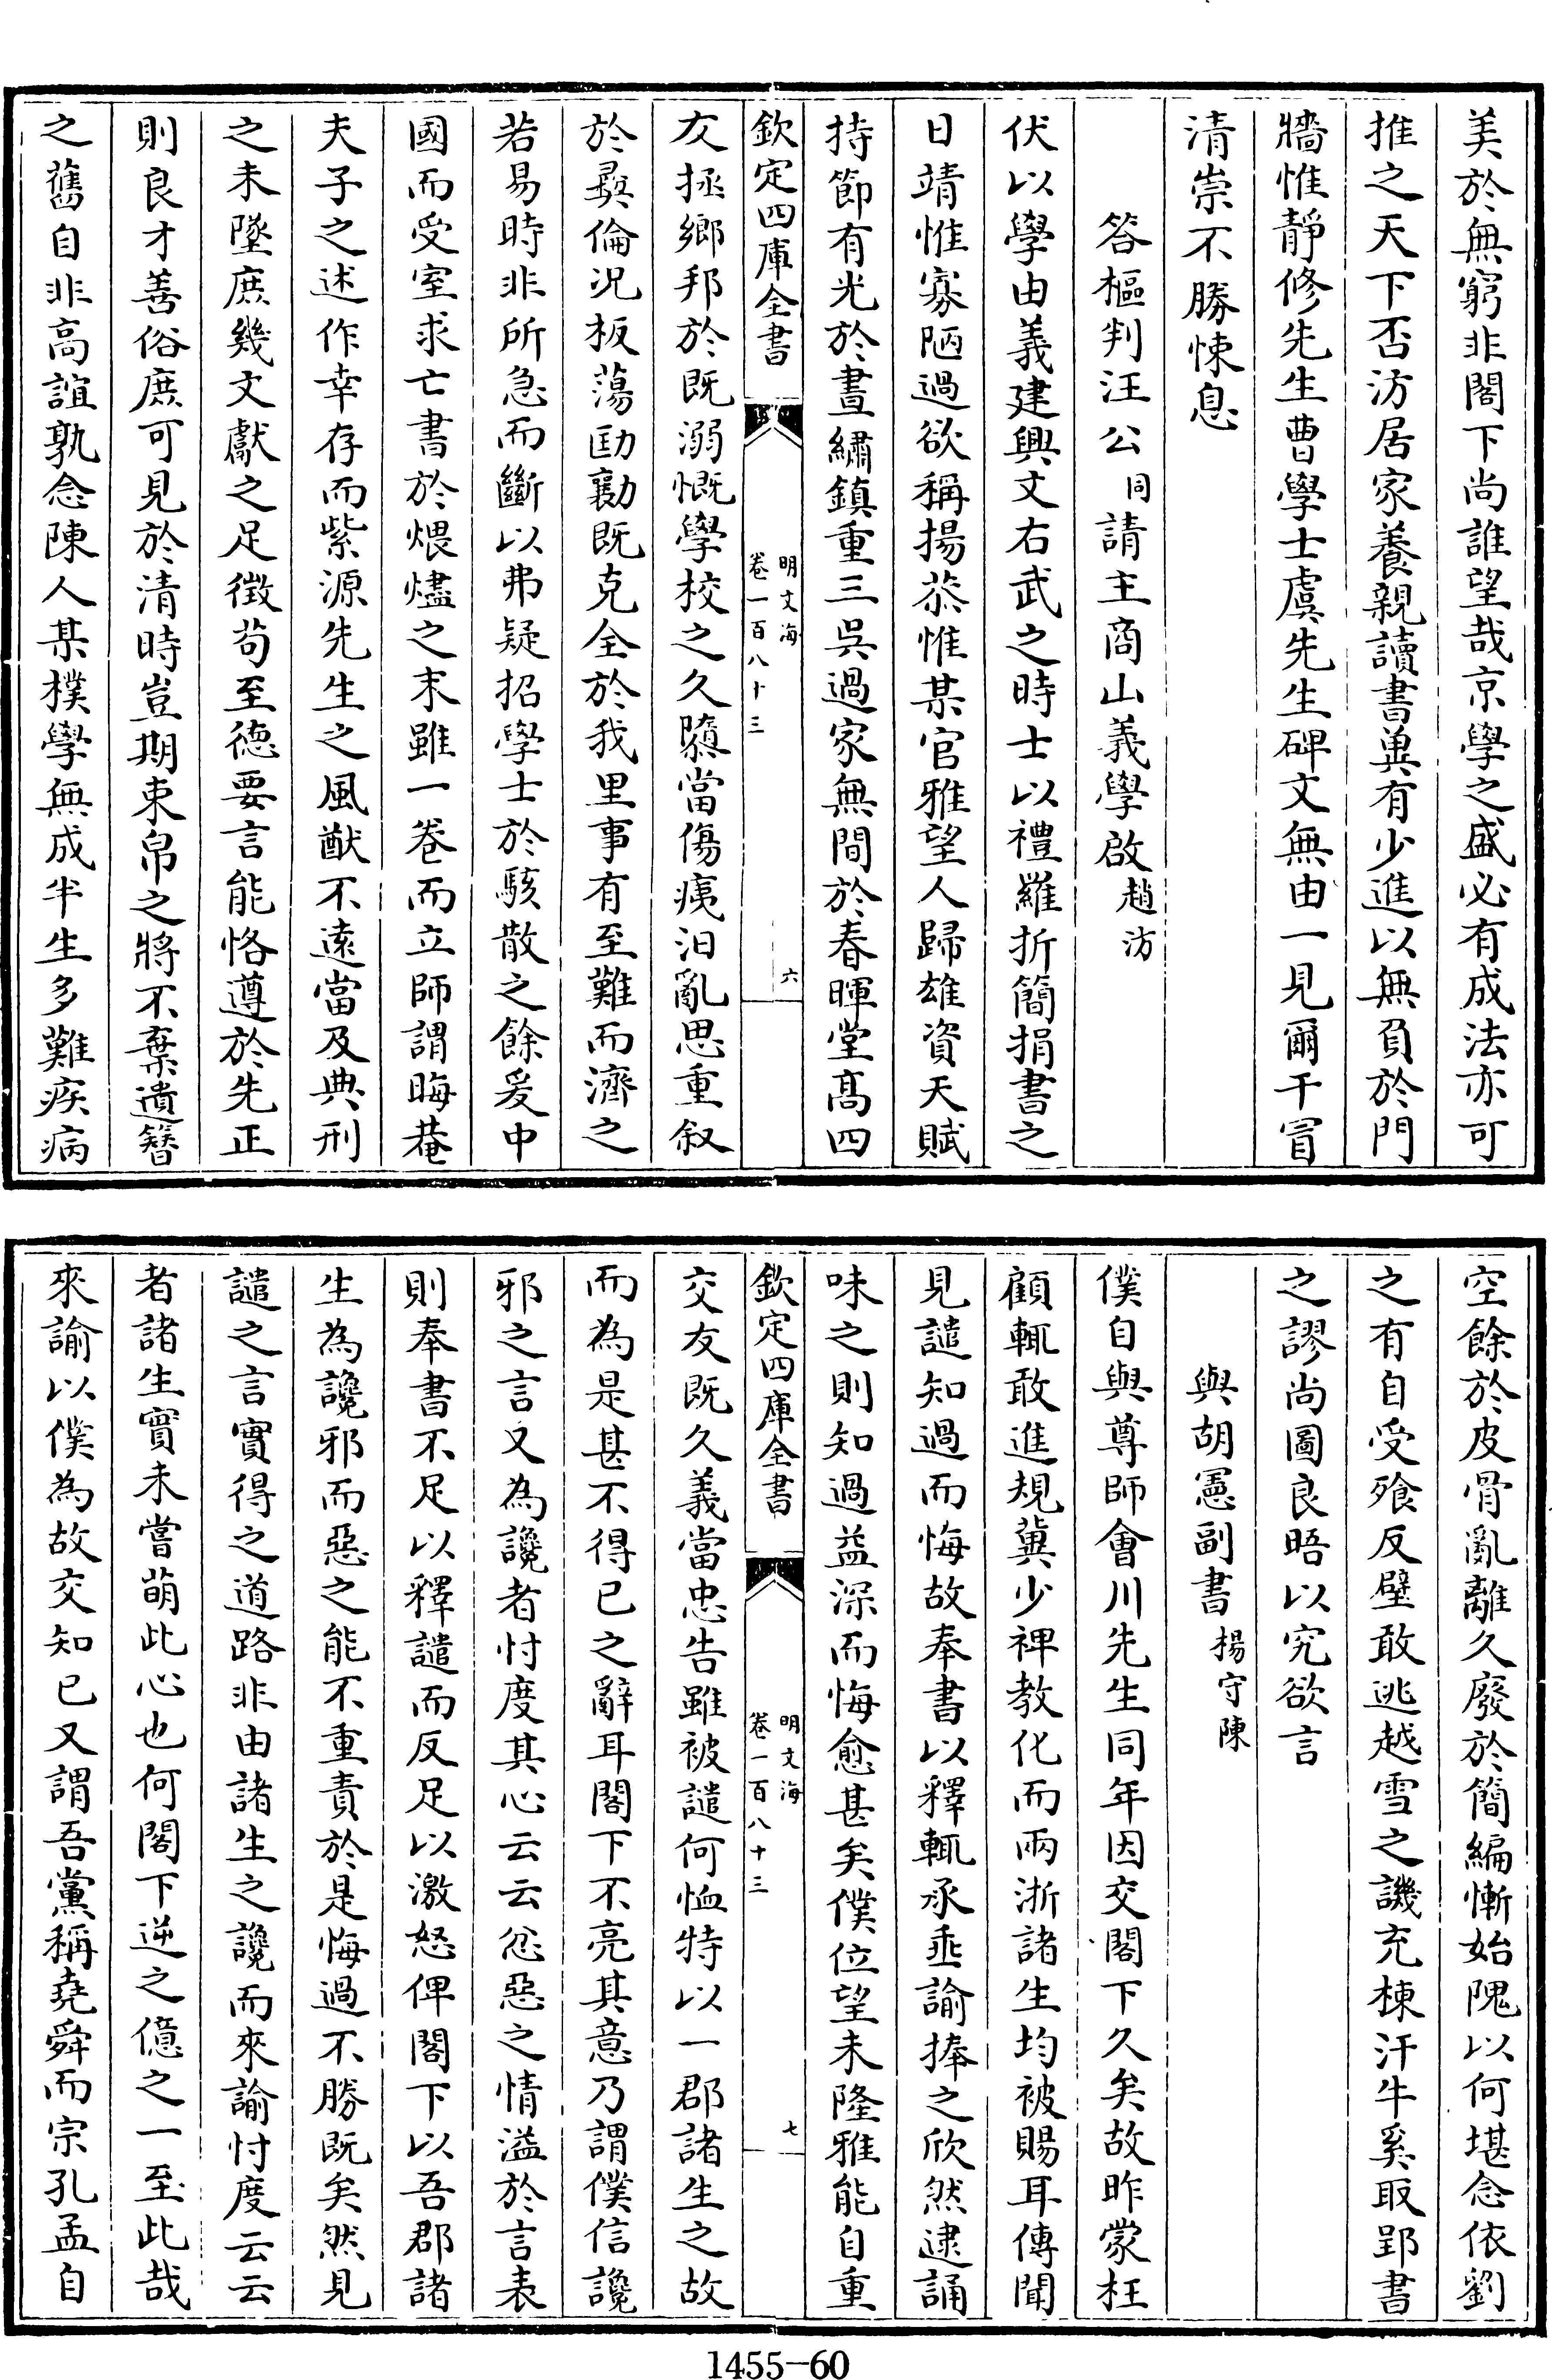 美於無窮非閣下尚誰望哉京學之盛必有成法亦可
推之天下否汸居家養親讀書兾有少進以無負於門
牆惟靜修先生曹學士虞先生碑文無由一見爾干冒
清崇不勝悚息
答樞判汪公同請主商山義學啟趙汸
伏以學由義建興文右武之時士以禮羅折簡捐書之
日靖惟寡陋過欲稱揚恭惟某官雅望人歸雄資天賦
持節有光於晝繡鎮重三吳過家無間於春暉堂髙四
欽定四庫全書
明文海
卷一百八十三
六
友拯鄉邦於既溺慨學校之久隳當傷痍汨亂思重叙
於彛倫況板蕩劻勷既克全於我里事有至難而濟之
若易時非所急而斷以弗疑招學士於駭散之餘爰中
國而受室求亡書於煨燼之末雖一卷而立師謂晦菴
夫子之述作幸存而紫源先生之風猷不遠當及典刑
之未墜庶幾文獻之足徴苟至徳要言能恪遵於先正
則良才善俗庶可見於清時豈期束帛之將不棄遺簪
之舊自非高誼孰念陳人某樸學無成半生多難疾病
空餘於皮骨亂離久廢於簡編慚始隗以何堪念依劉
之有自受飱反壁敢逃越雪之譏充棟汗牛奚取郢書
之謬尚圖良晤以究欲言
與胡憲副書楊守陳
僕自與尊師會川先生同年因交閣下久矣故昨蒙枉
顧輒敢進規兾少裨教化而兩浙諸生均被賜耳傳聞
見譴知過而悔故奉書以釋輒承垂諭捧之欣然逮誦
味之則知過益深而悔愈甚矣僕位望未隆雅能自重
欽定四庫全書
明文海
卷一百八十三
七
交友既久義當忠告雖被譴何恤特以一郡諸生之故
而為是甚不得已之辭耳閣下不亮其意乃謂僕信讒
邪之言又為讒者忖度其心云云忿惡之情溢於言表
則奉書不足以釋譴而反足以激怒俾閣下以吾郡諸
生為讒邪而惡之能不重責於是悔過不勝既矣然見
譴之言實得之道路非由諸生之讒而來諭忖度云云
者諸生實未嘗萌此心也何閣下逆之億之一至此哉
來諭以僕為故交知已又謂吾黨稱堯舜而宗孔孟自
1455-60